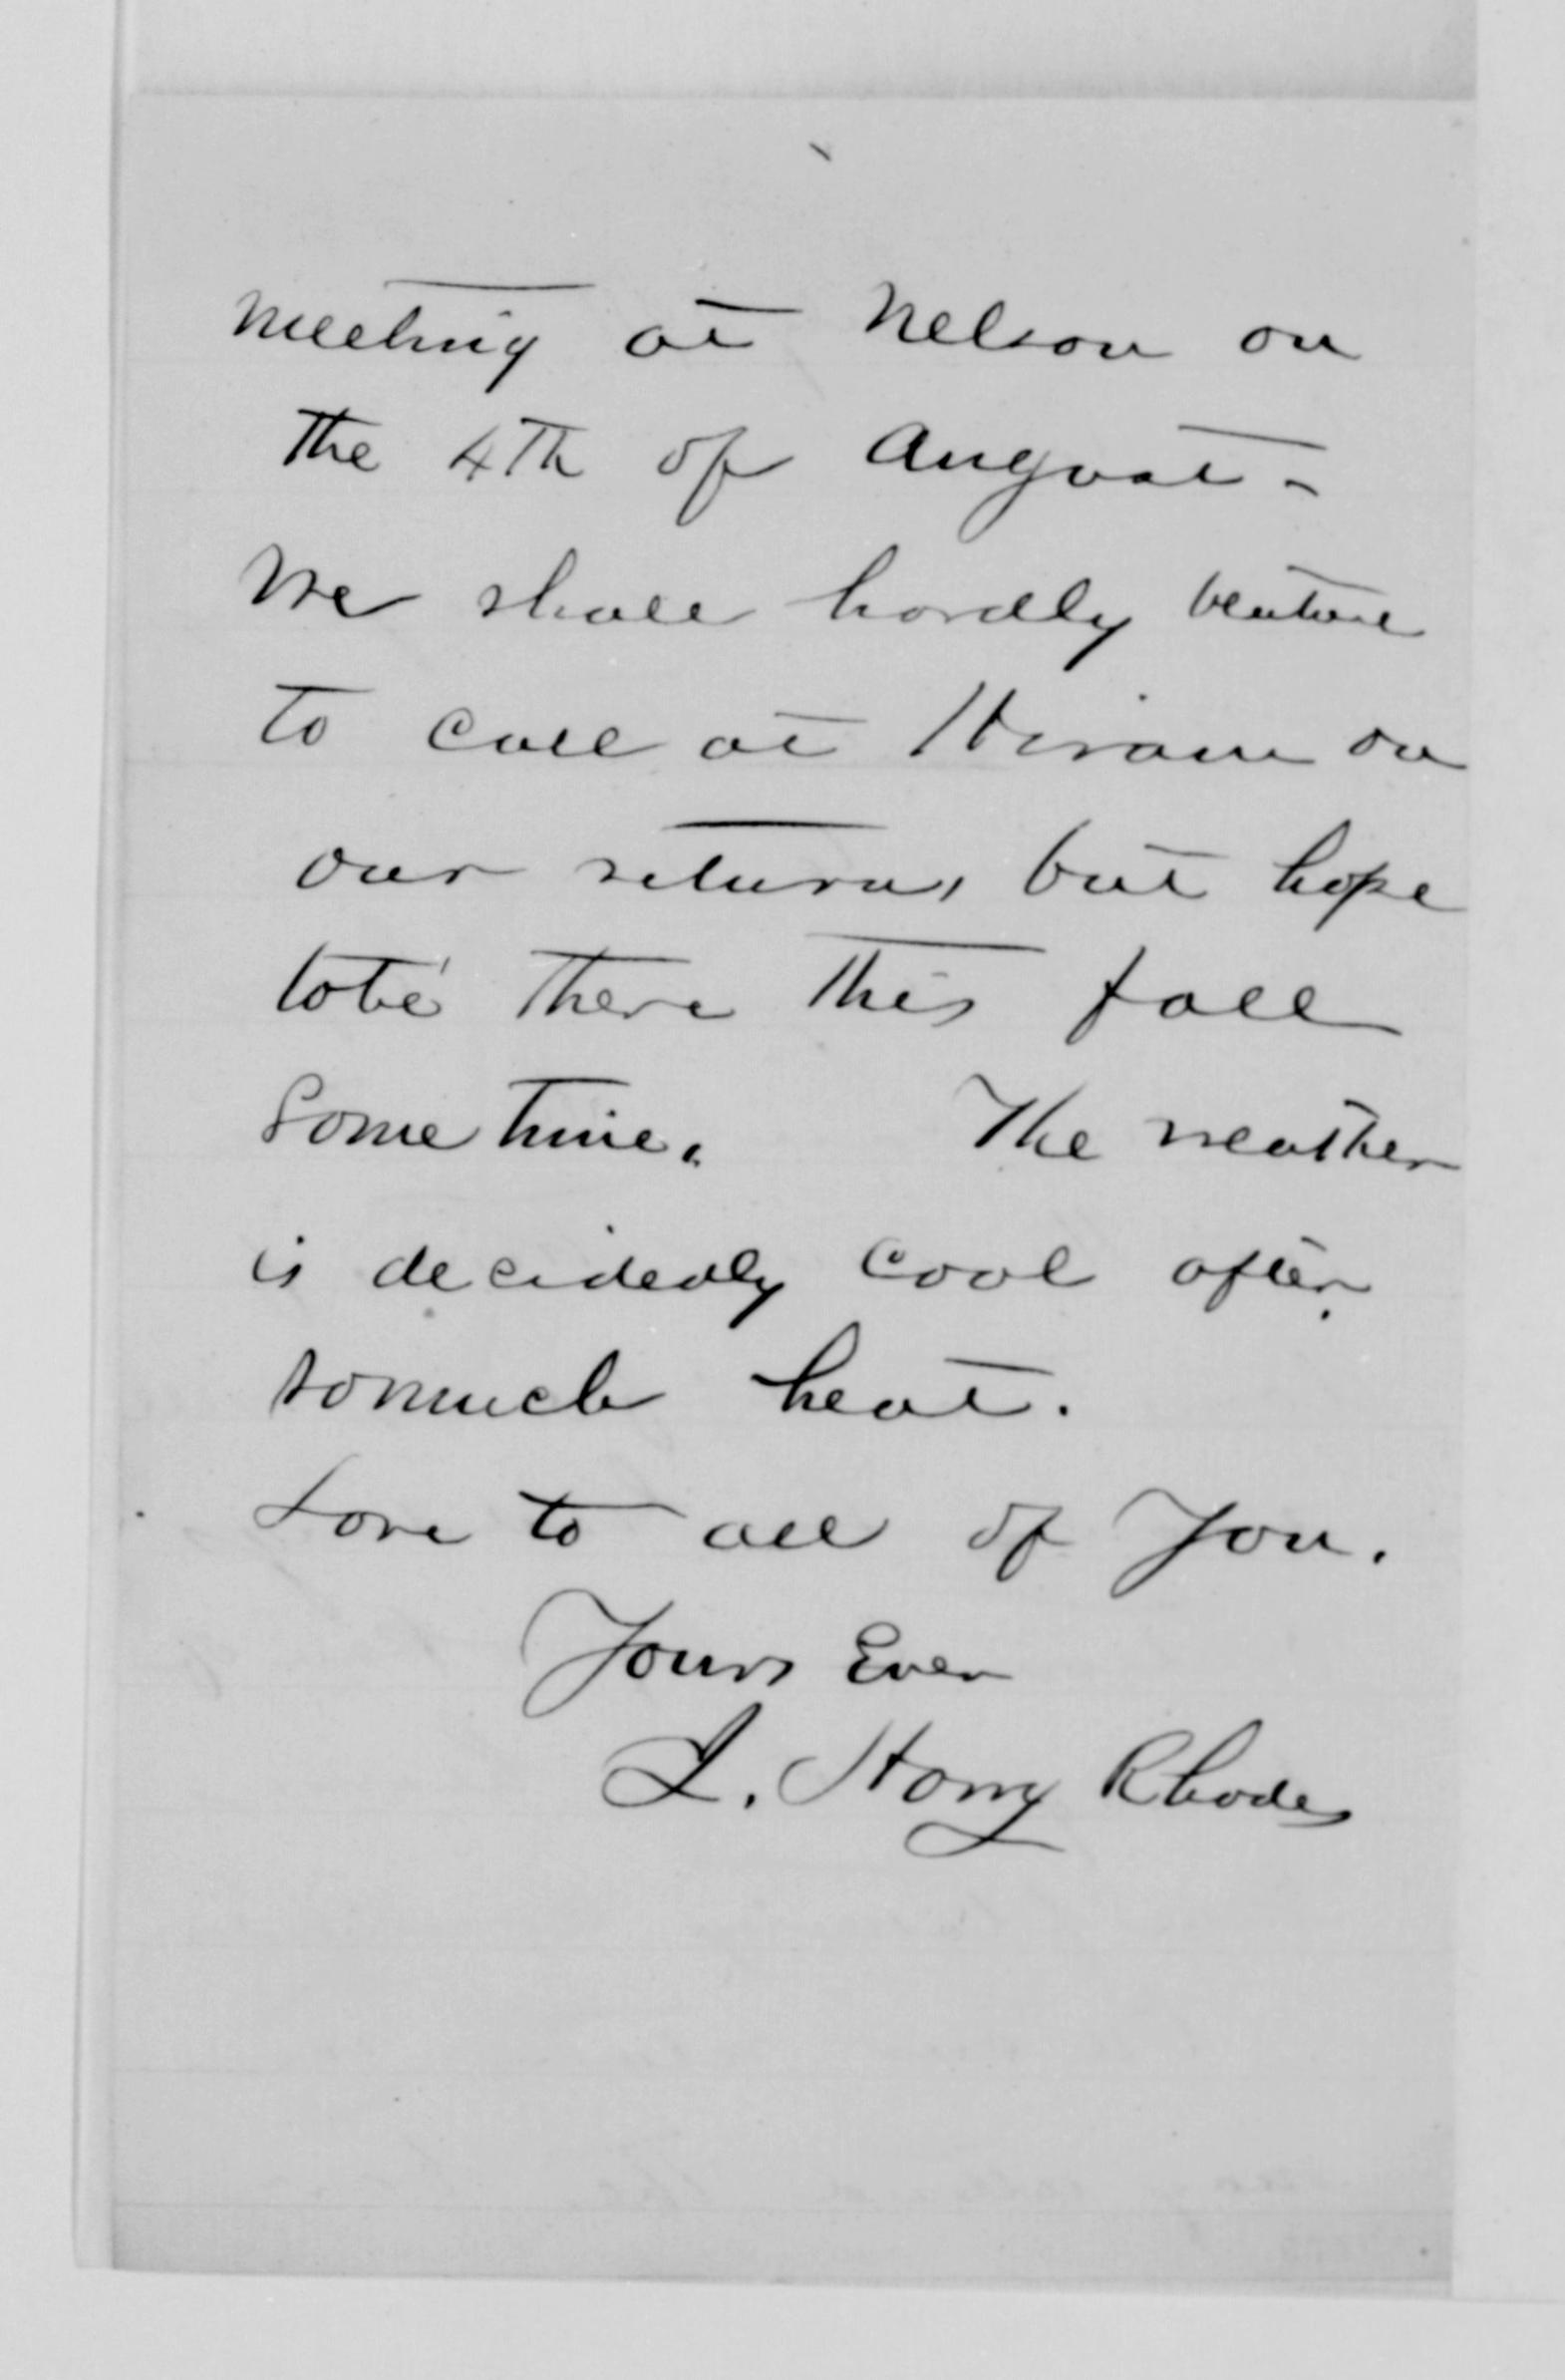 meeting at Nelson on
the 4th of August -
We shall hardly venture
to call at Hiram on
our return, but hope
to be there this fall
Sometime. The weather
is decidedly cool after
so much heat.
Love to all of You.
Yours Ever
J. Harry Rhodes